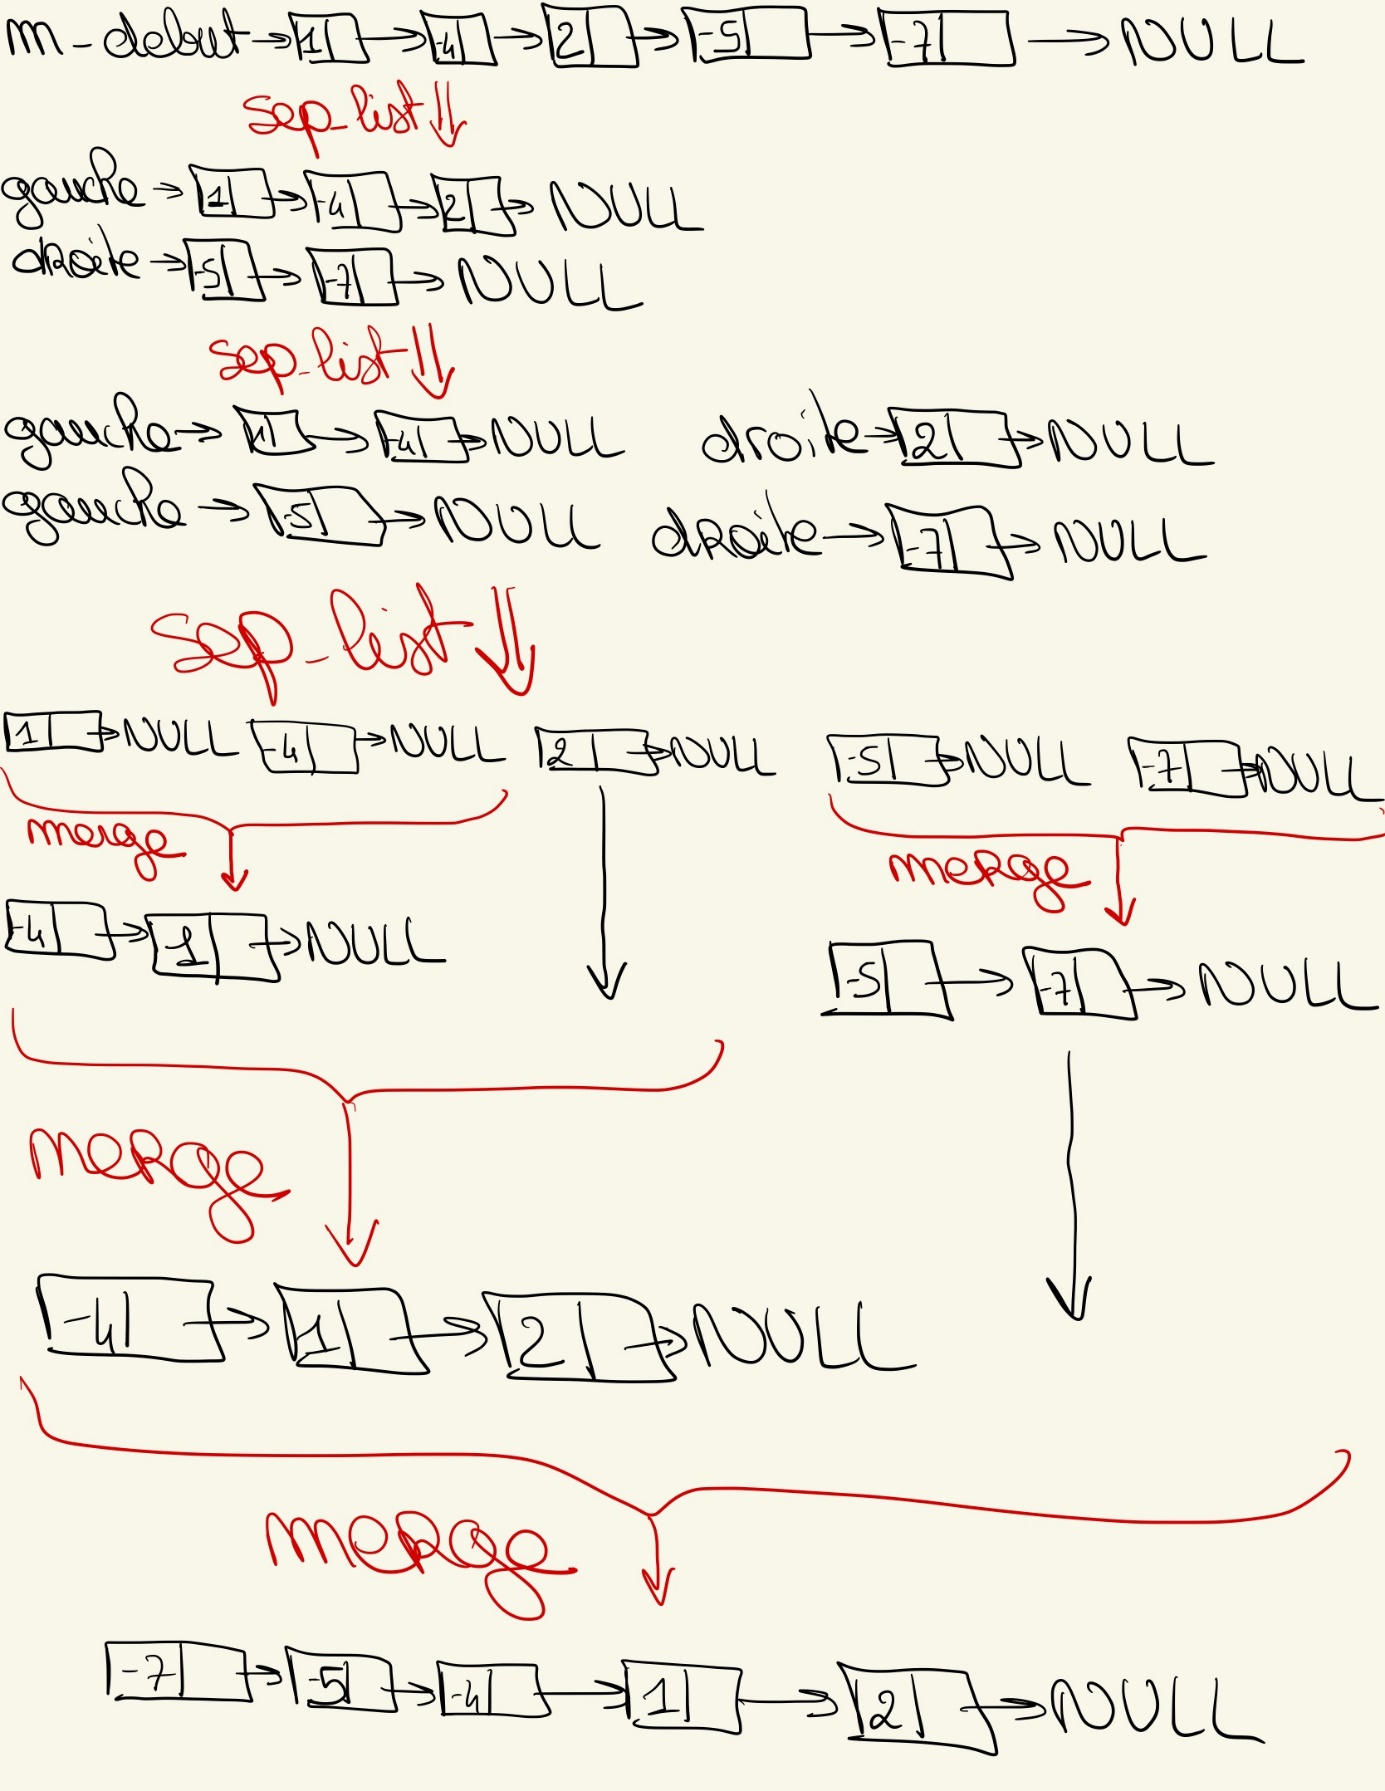 m-debut → 1 → -4 → 2 → -5 → -7 → NULL
sep_list
gauche → 1 → -4 → 2 → NULL
droite → -5 → -7 → NULL
sep_list
gauche → 1 → -4 → NULL droite → 2 → NULL
gauche → -5 → NULL droite → -7 → NULL
sep_list
1 → NULL -4 → NULL 2 → NULL -5 → NULL -7 → NULL
merge merge
-4 → 1 → NULL -5 → -7 → NULL
merge
-4 → 1 → 2 → NULL
merge
-7 → -5 → -4 → 1 → 2 → NULL